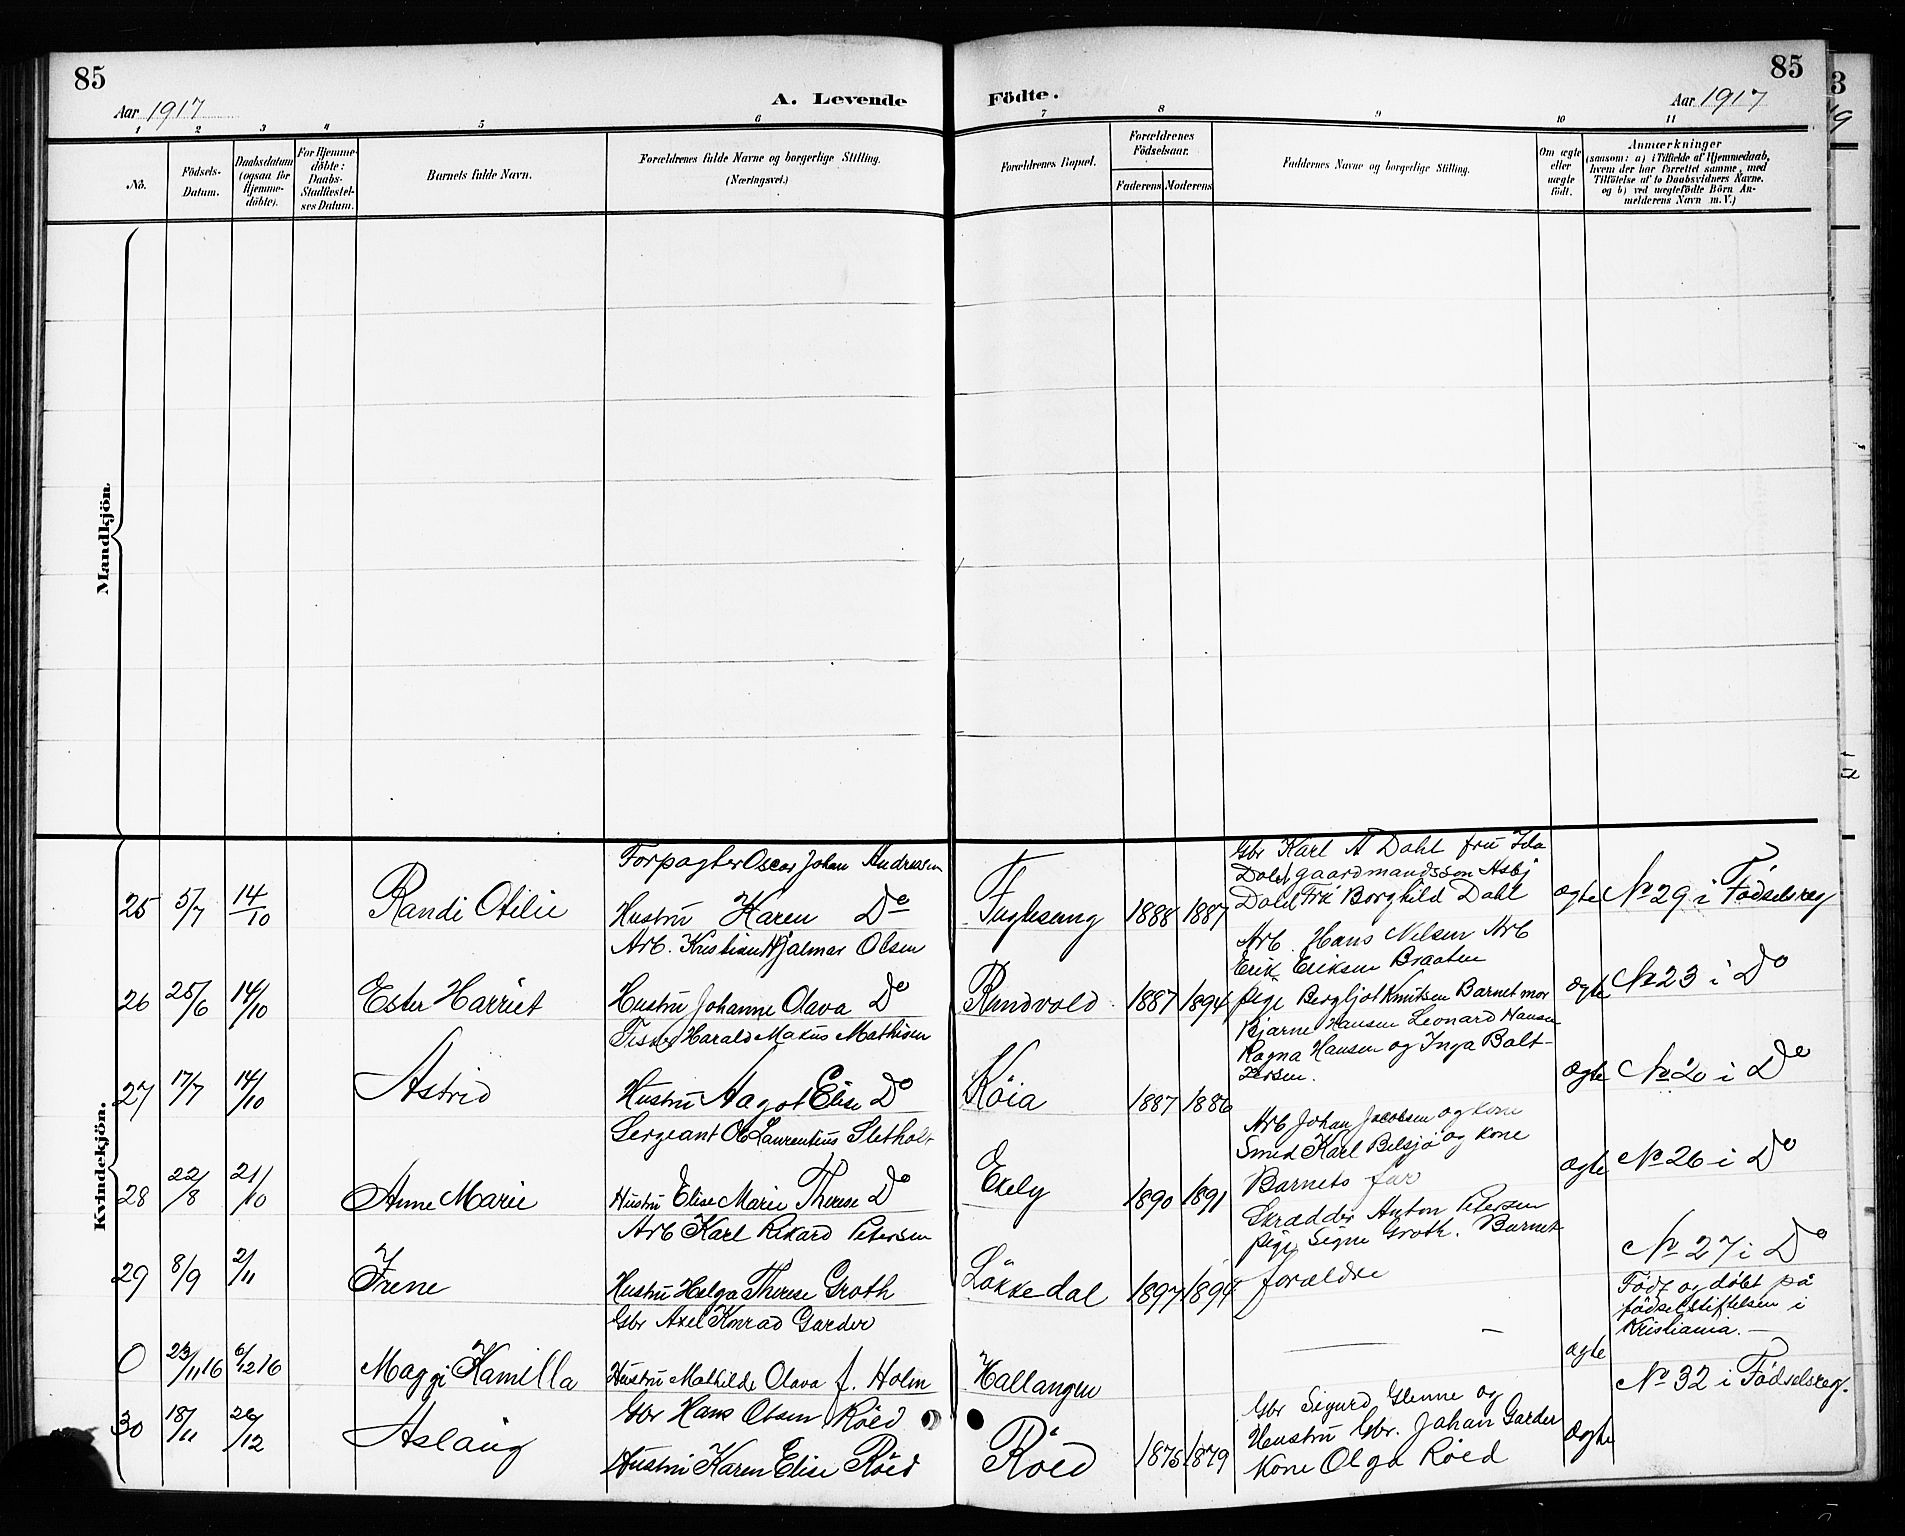 85
85
Aar 1917
A. Levende
Födte.
Aar 1917
1 2 3 4 5 6 7 8 9 10 11
Nö.
Födsels-Datum.
Daabsdatum (ogsaa for Hjemme-döbte).
For Hjemme-döbte: Daabs-Stadfæstel-ses Datum.
Barnets fulde Navn.
Forældrenes fulde Navne og borgerlige Stilling.
(Næringsvei.)
Forældrenes Bopæl.
Forældrenes Födselsaar.
Faderens Moderens
Faddernes Navne og borgerlige Stilling.
Om ægte eller uægte födt.
Anmærkninger
(saasom: a) i Tilfælde af Hjemmedaab,
hvem der har forrettet samme, med
Tilföielse af to Daabsvidners Navne.
og b) ved uægtefödte Börn An-
melderens Navn m. V.)
Mandkjön.
Kvindekjön.
25 5/7 14/10 Randi Otilie
Forpagter Oscar Johan Andreasen
Hustru Karen Do
Fuglesang 1888 1887
Gbr Karl A Dahl fru Ida
Dahl gaardmandssön Asbj
Dahl Frk Borghild Dahl
ægte No 29 i Fødselsreg
26 25/6 14/10 Ester Harriet
Arb. Kristian Hjalmar Olsen
Hustru Johanne Olava Do
Rundvold 1887 1894
Arb. Hans Nilsen Arb
Erik Eriksen Braaten
pige Bergljot Knutsen Barnet mor
ægte No 23 i Do
27 17/7 14/10 Astrid
Harald Makus Mathisen
Hustru Aagot Elise Do
Köia 1887 1886
Bjarne Hansen Leonard Hansen
Ragna Hansen og Inga Balt-
zersen.
ægte No 20 i Do
28 22/8 21/10 Anne Marie
Sergeant Ole Laurentius Sletholt
Hustru Elise Marie Therese Do
Ekely 1890 1891
Arb Johan Jacobsen og kone
Smed Karl Belsjø og kone
Barnets far
ægte No 26 i Do
29 8/9 2/11 Irene
Arb Karl Rikard Petersen
Hustru Helga Therese Groth
Løkkedal 1897 1894
Skrædder Anton Petersen
pige Signe Groth. Barnet
forældre
No 27 i Do
0 23/11 16 6/12 16 Maggi Kamilla
Gbr Axel Konrad Garder
Hustru Mathilde Olava f. Holm
Hallangen
ægte
Født og døbt på
fødselstiftelsen i
Kristiania. —
30 18/11 26/12 Aslaug
Gbr Hans Olsen Röed
Hustru Karen Elise Röed
Röed 1875 1879
Gbr Sigurd Glenne og
Hustru Gbr. Johan Garder
Kone Olga Röed
ægte No 32 i Fødselsreg.